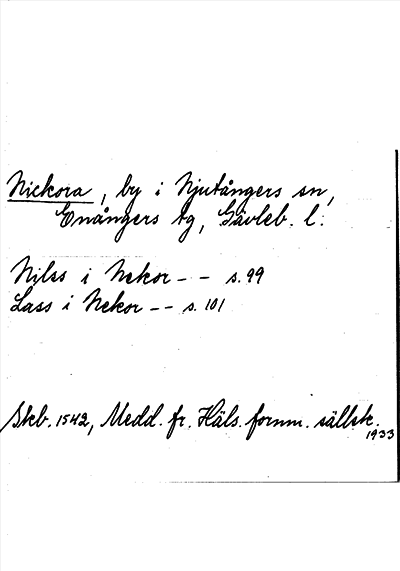 Nickora, by i Njutångers sn,
Enångers tg, Gävleb. l.
Nilss i Nekor - - s. 99
Lass i Nekor - - s. 101
Skb. 1542, Medd. fr. Häls. fornm. sällsk.
1933